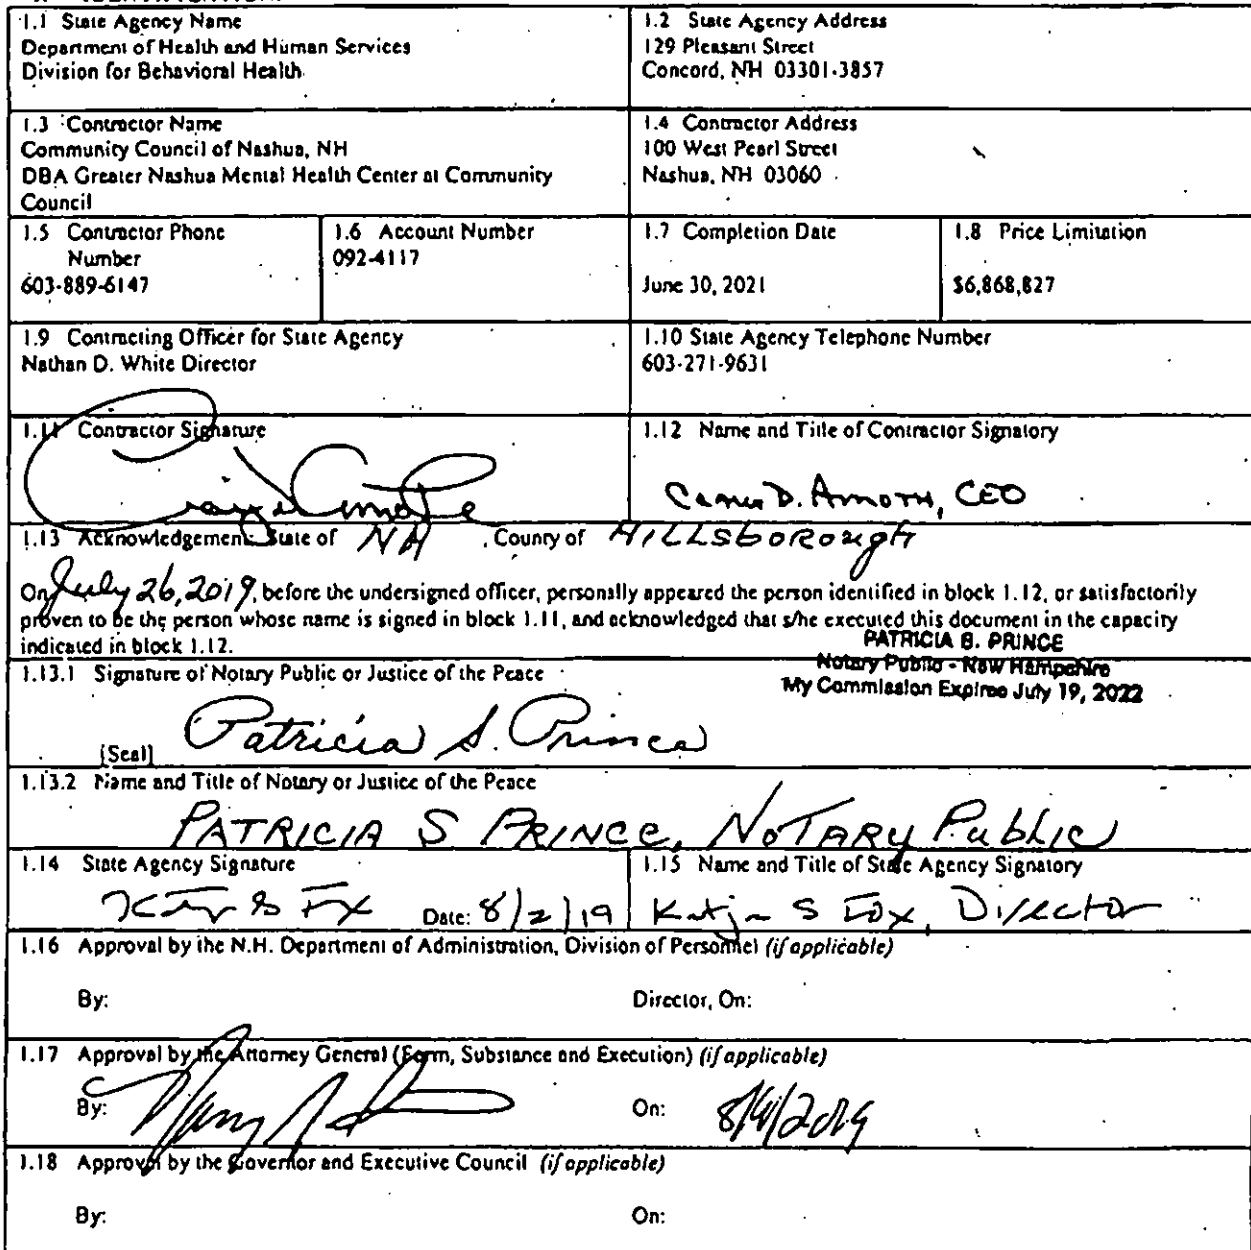 1.1 State Agency Name
Department of Health and Human Services
Division for Behavioral Health
1.2 State Agency Address
129 Pleasant Street
Concord, NH 03301-3857
1.3 Contractor Name
Community Council of Nashua, NH
DBA Greater Nashua Mental Health Center at Community
Council
1.4 Contractor Address
100 West Pearl Street
Nashua, NH 03060
1.5 Contractor Phone
Number
603-889-6147
1.6 Account Number
092-4117
1.7 Completion Date
June 30, 2021
1.8 Price Limitation
$6,868,827
1.9 Contracting Officer for State Agency
Nathan D. White Director
1.10 State Agency Telephone Number
603-271-9631
1.11 Contractor Signature
1.12 Name and Title of Contractor Signatory
D. Amoth, CEO
1.13 Acknowledgement: State of NH , County of HILLSboRough
On July 26, 2019, before the undersigned officer, personally appeared the person identified in block 1.12, or satisfactorily
proven to be the person whose name is signed in block 1.11, and acknowledged that s/he executed this document in the capacity
indicated in block 1.12.
PATRICIA S. PRINCE
Notary Public - New Hampshire
My Commission Expires July 19, 2022
1.13.1 Signature of Notary Public or Justice of the Peace
[Seal] Patricia S. Prince
1.13.2 Name and Title of Notary or Justice of the Peace
PATRICIA S PRINCE, NOTARY Public
1.14 State Agency Signature
Date: 8/2/19
1.15 Name and Title of State Agency Signatory
Katja S Fox, Director
1.16 Approval by the N.H. Department of Administration, Division of Personnel (if applicable)
By: Director, On:
1.17 Approval by the Attorney General (Form, Substance and Execution) (if applicable)
By: On:
1.18 Approval by the Governor and Executive Council (if applicable)
By: On: